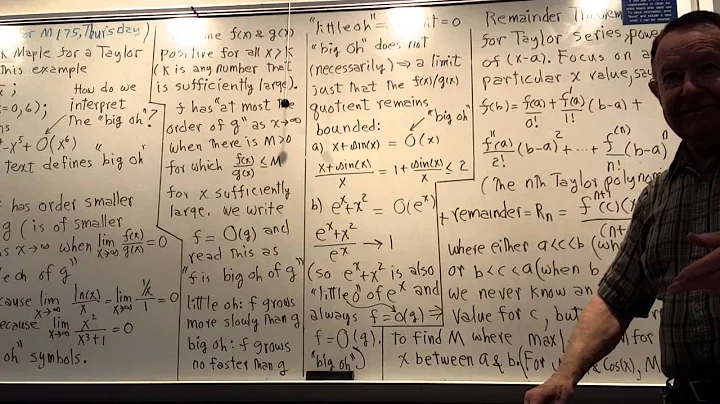 for M175, Thursday)
k Maple for a Taylor
This example
x ;
x=0,6);
-x⁵ + O(x⁶)
How do we
interpret
the "big oh"?
text defines "big oh"
has order smaller
g (is of smaller
as x→∞ when lim x→∞ f(x)/g(x) = 0
oh of g"
cause lim x→∞ ln(x)/x = lim x→∞ 1/x/1 = 0
because lim x→∞ x²/x³+1 = 0
oh" symbols.
ne f(x) & g(x)
positive for all x>k
(k is any number that
is sufficiently large).
f has "at most the
order of g" as x→∞
when there is M>0
for which f(x)/g(x) ≤ M
for x sufficiently
large. we write
f = O(g) and
read this as
"f is big oh of g"
little oh: f grows
more slowly than g
big oh: f grows
no faster than g
"little oh" it = 0
"big oh" does not
(necessarily) ⇒ a limit
just that the f(x)/g(x)
quotient remains
bounded: "big oh"
a) x+sin(x) = O(x)
x+sin(x)/x = 1+sin(x)/x ≤ 2
b) eˣ+x² = O(eˣ)
eˣ+x²/eˣ → 1
(so eˣ+x² is also
"little o" of eˣ and
always f=o(g) ⇒
f = O(g).
"big oh")
Remainder Theorem
for Taylor series, powe
of (x-a). Focus on a
particular x value, say
f(b) = f(a)/0! + f'(a)/1! (b-a) +
f''(a)/2! (b-a)² + ··· + f⁽ⁿ⁾(a)/n! (b-a)ⁿ
(the nth Taylor polynom
+ remainder = Rn = fⁿ⁺¹(c)(x
(n+
where either a<c<b (wh
or b<c<a (when b
we never know an
value for c, but
to find M where max | for
x between a & b. (For & cos(x), M